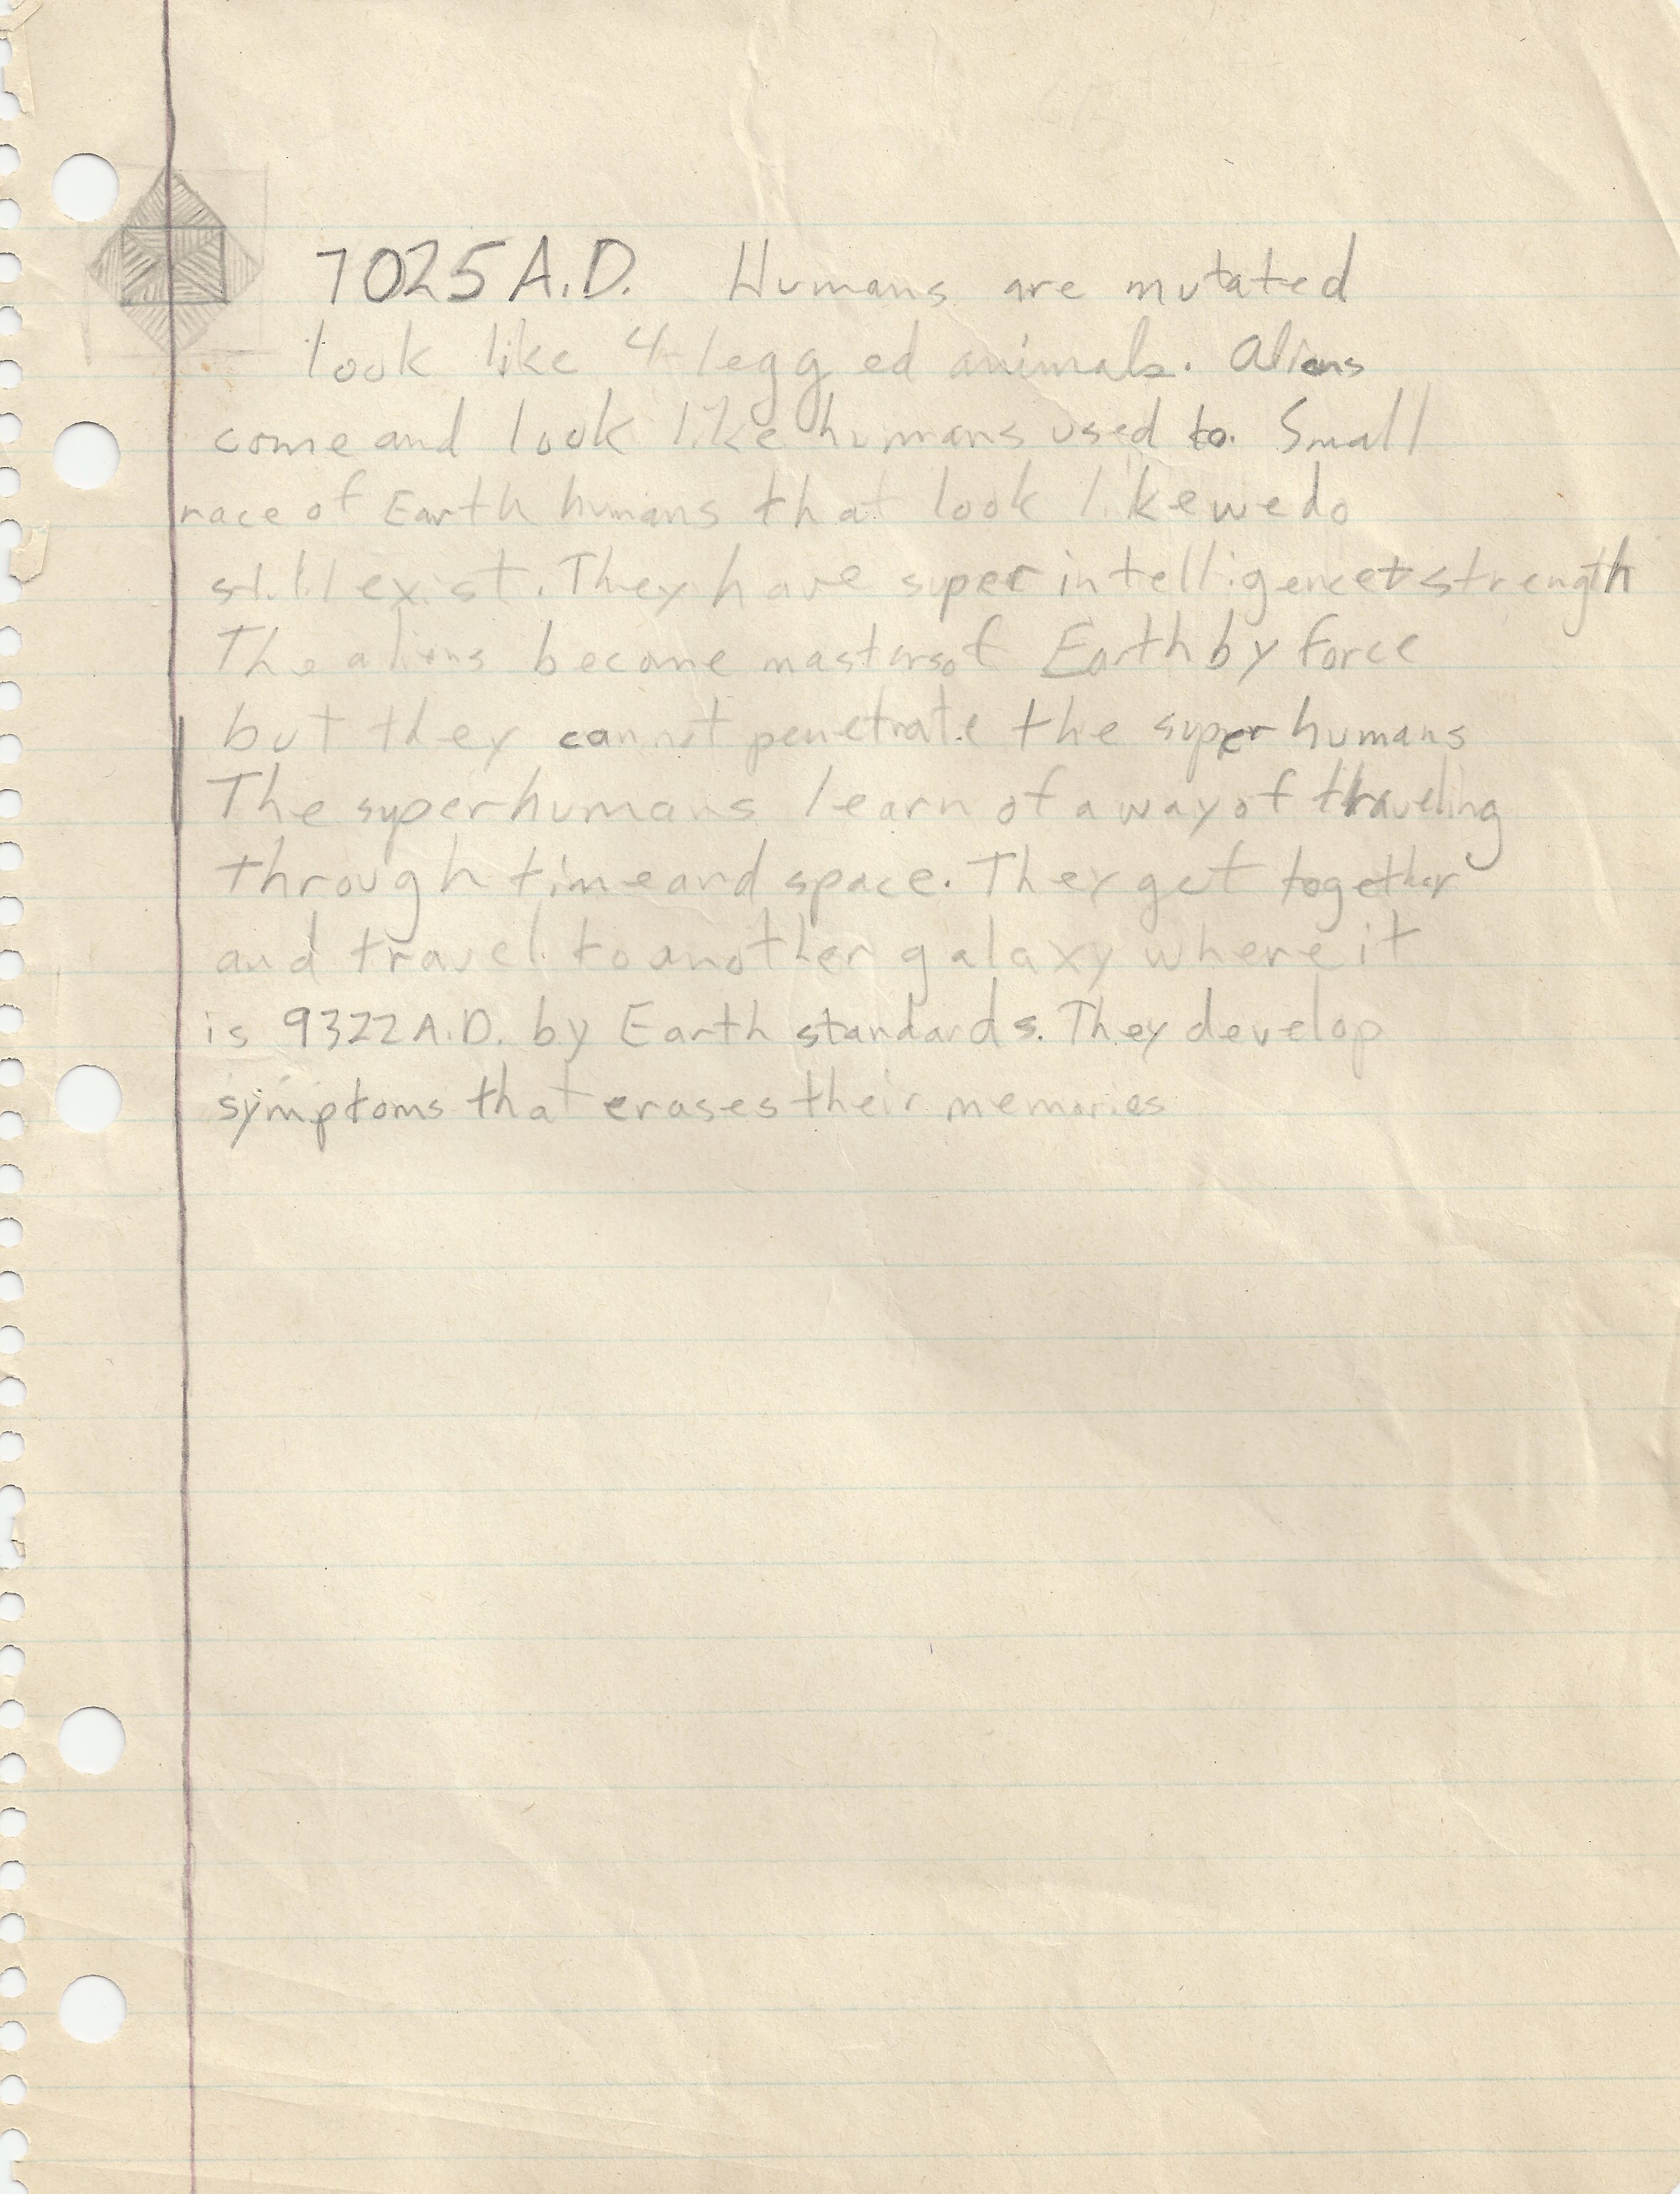 7025 A.D. Humans are mutated
look like 4-legged animals. Aliens
come and look like humans used to. Small
race of Earth humans that look like we do
still exist. They have super intelligence + strength
The aliens become masters of Earth by force
but they cannot penetrate the super humans
The superhumans learn of a way of traveling
through time and space. They get together
and travel to another galaxy where it
is 9322 A.D. by Earth standards. They develop
symptoms that erases their memories